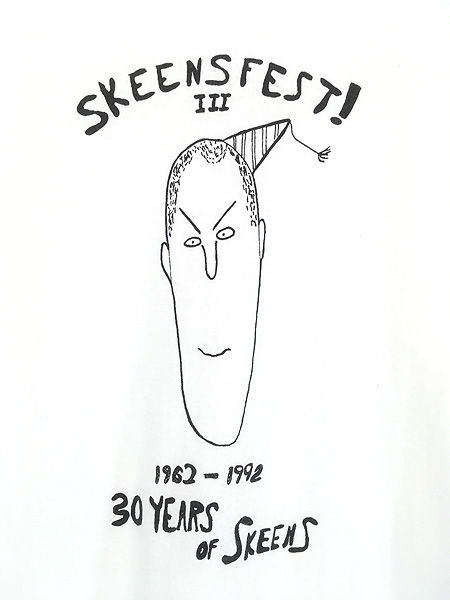 SKEENSFEST!
III
1962 - 1992
30 YEARS
OF SKEENS